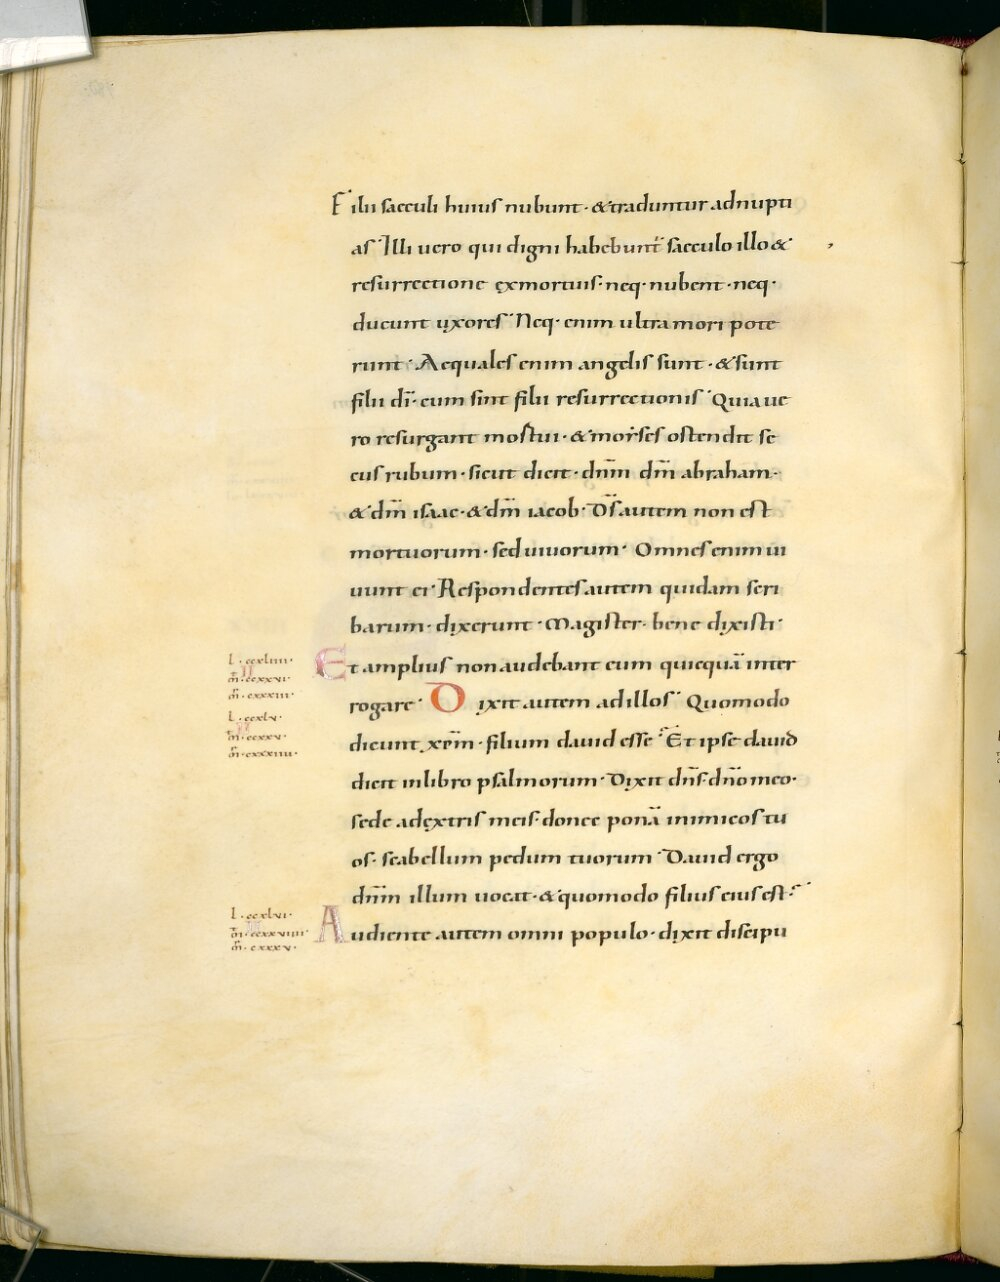 Filii saeculi huius nubunt · & traduntur ad nupti
as · Illi uero qui digni habebunt̄ saeculo illo &
resurrectione ex mortuis · neq· nubent · neq·
ducunt uxores · Neq· enim ultra mori pote
runt · Aequales enim angelis sunt · & sunt
filii dī · cum sint filii resurrectionis · Quia ue
ro resurgant mortui · & moyses ostendit se
cus rubum · sicut dicit · dnm̄ dm̄ abraham ·
& dm̄ isaac · & dm̄ iacob · Ds̄ autem non est
mortuorum · sed uiuorum · Omnes enim ui
uunt ei · Respondentes autem quidam scri
barum · dixerunt · Magister · bene dixisti ·
l · ccxliiii ·
m̄ · ccxxvi ·
m̄ · cxxxiii ·
Et amplius non audebant eum quicquā inter
rogare · Dixit autem ad illos · Quomodo
l · ccxlv ·
m̄ · ccxxv ·
m̄ · cxxxiiii ·
dicunt xpm̄ · filium dauid esse · Et ipse dauid
dicit in libro psalmorum · Dixit dns̄ · dnō meo ·
sede ad extris meis · donec ponā inimicos tu
os · scabellum pedum tuorum · Dauid ergo
dnm̄ illum uocat · & quomodo filius eius est ·
l · ccxlvi ·
m̄ · ccxxviiii ·
m̄ · cxxxv ·
Audiente autem omni populo · dixit discipu